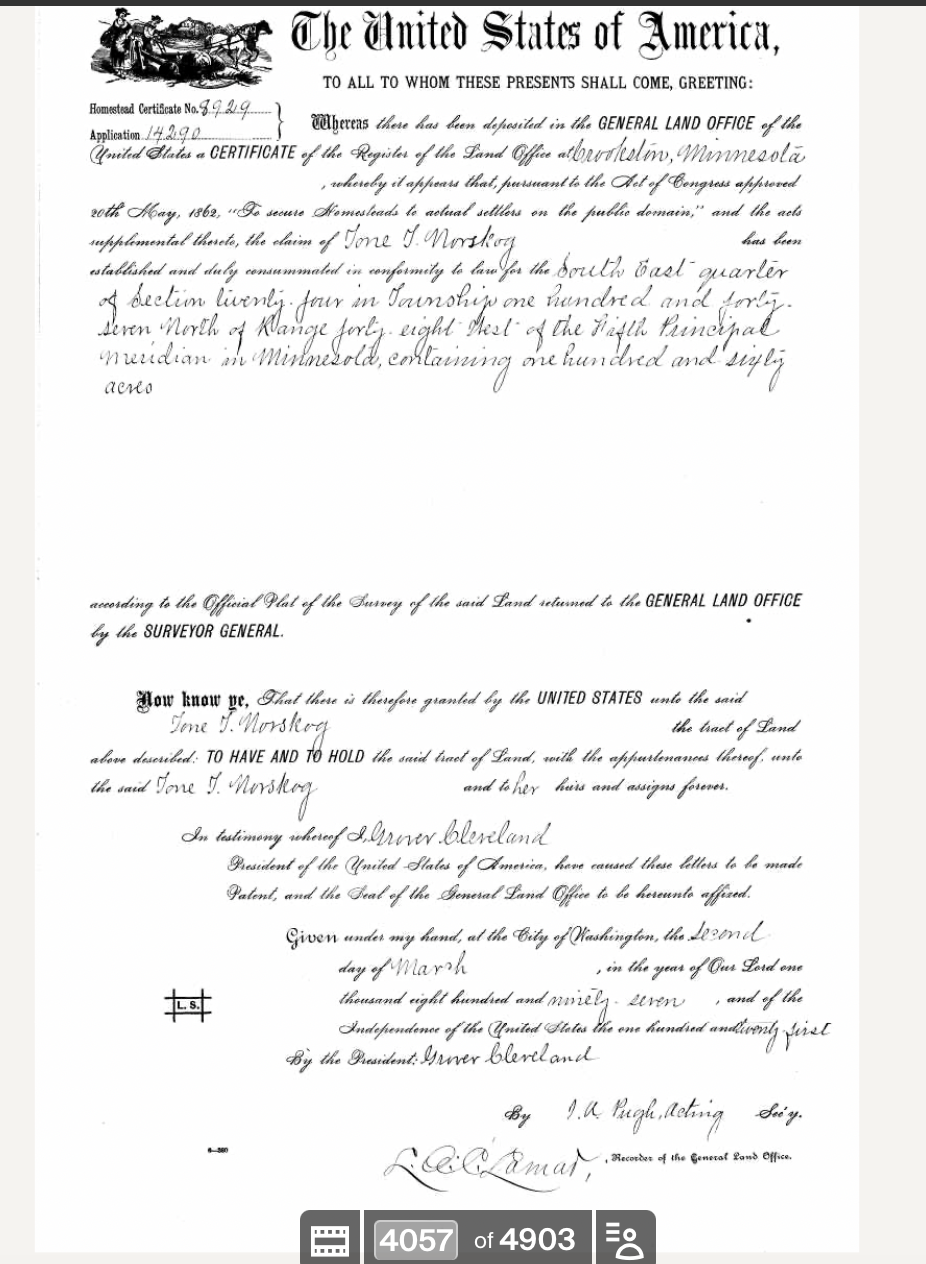 The United States of America,
TO ALL TO WHOM THESE PRESENTS SHALL COME, GREETING:
Homestead Certificate No. 8929
Application 14290
Whereas there has been deposited in the GENERAL LAND OFFICE of the
United States a CERTIFICATE of the Register of the Land Office at Crookston, Minnesota
, whereby it appears that, pursuant to the Act of Congress approved
20th May, 1862, "To secure Homesteads to actual settlers on the public domain," and the acts
supplemental thereto, the claim of Tone T. Norskog has been
established and duly consummated in conformity to law for the South East quarter
of Section twenty-four in Township one hundred and forty-
seven North of Range forty-eight West of the Fifth Principal
Meridian in Minnesota, containing one hundred and sixty
acres
according to the Official Plat of the Survey of the said Land returned to the GENERAL LAND OFFICE
by the SURVEYOR GENERAL.
Now know ye, That there is therefore granted by the UNITED STATES unto the said
Tone T. Norskog the tract of Land
above described: TO HAVE AND TO HOLD the said tract of Land, with the appurtenances thereof, unto
the said Tone T. Norskog and to her heirs and assigns forever.
In testimony whereof I, Grover Cleveland
President of the United States of America, have caused these letters to be made
Patent, and the Seal of the General Land Office to be hereunto affixed.
Given under my hand, at the City of Washington, the second
day of March , in the year of Our Lord one
thousand eight hundred and ninety-seven , and of the
Independence of the United States the one hundred and twenty-first
L. S.
By the President: Grover Cleveland
By I. A. Pugh, Acting Sec'y.
6—380
L. Q. C. Lamar, , Recorder of the General Land Office.
4057 of 4903